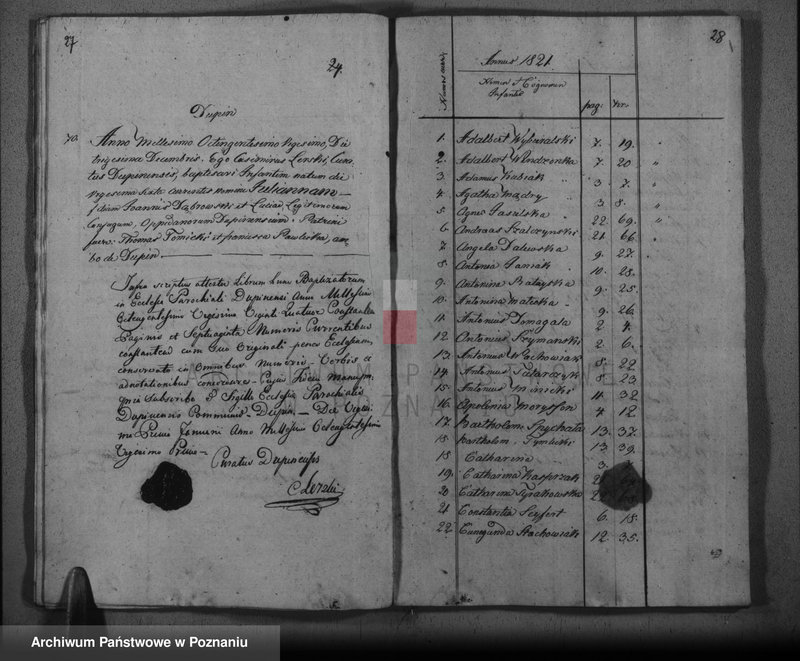 27
24.
Dupin
70. Anno Millesimo Octingentesimo Vigesimo, Die
trigesima Decembris. Ego Casimirus Lenski, Cura-
tus Dupinensis, baptisavi Infantem natum die
vigesima sexta currentis nomini Juliannam —
filiam Joannis Dąbrowski et Luciae Legitimorum
Conjugum, Oppidanorum Dupinensium. Patrini
fuere Thomas Tomicki et francisca Pawlicka, am-
bo de Dupin.
Infra scriptus attestor Librum hunc Baptizatorum
in Ecclesia Parochiali Dupinensi Anni Millesimi
Octingentesimi Vigesimi Viginti Quatuor Constantem
Paginis et Septuaginta Numeris Currentibus
constantem cum suo Originali penes Ecclesiam
conservato in Omnibus Numeris Verbis et
adnotationibus concordare. Cujus Fidem Manu pro-
pria Subscribo et Sigillo Ecclesiae Parochialis
Dupinensis Communio. Dupin Die Vigesi-
ma Prima Januarii Anno Millesimo Octingentesimo
Vigesimo Primo —
Curatus Dupinensis
C Lenski
28
Annus 1821
Numerus
Nomen et Cognomen
Infantis
pag:
1. Adalbert Wybieralski 7. 19.
2. Adalbert Wendzonka 7. 20
3. Adamus Kubiak 3. 7.
4. Agatha Mądry 3. 8.
5 Agnes Pasulska 22. 69.
6 Andreas Szalczynski 21. 66.
7 Angela Dalewska 9. 27.
8. Antonia Janiak 10. 28.
9. Antonina Ratayska 9. 25.
10 Antonina Matuska 9. 26.
11. Antonius Domagala 2 4.
12 Antonius Szymanski 2. 6.
13. Antonius Wachowiak 8. 22
14. Antonius Tatarczyk 8. 23
15. Antonius Winicki 11 32
16. Apolonia Marysson 4 12
17 Bartholom. Spychała 13. 37.
18 Bartholom. Tomicki 13 39.
18 Catharina 3.
19. Catharina Kasprzak
20 Catharina Tyrakowska
21 Constantia Seyfert 6. 18.
22 Cunegunda Stachowiak 12. 35.
ARCHIWUM PAŃSTWOWE
W POZNANIU
Archiwum Państwowe w Poznaniu